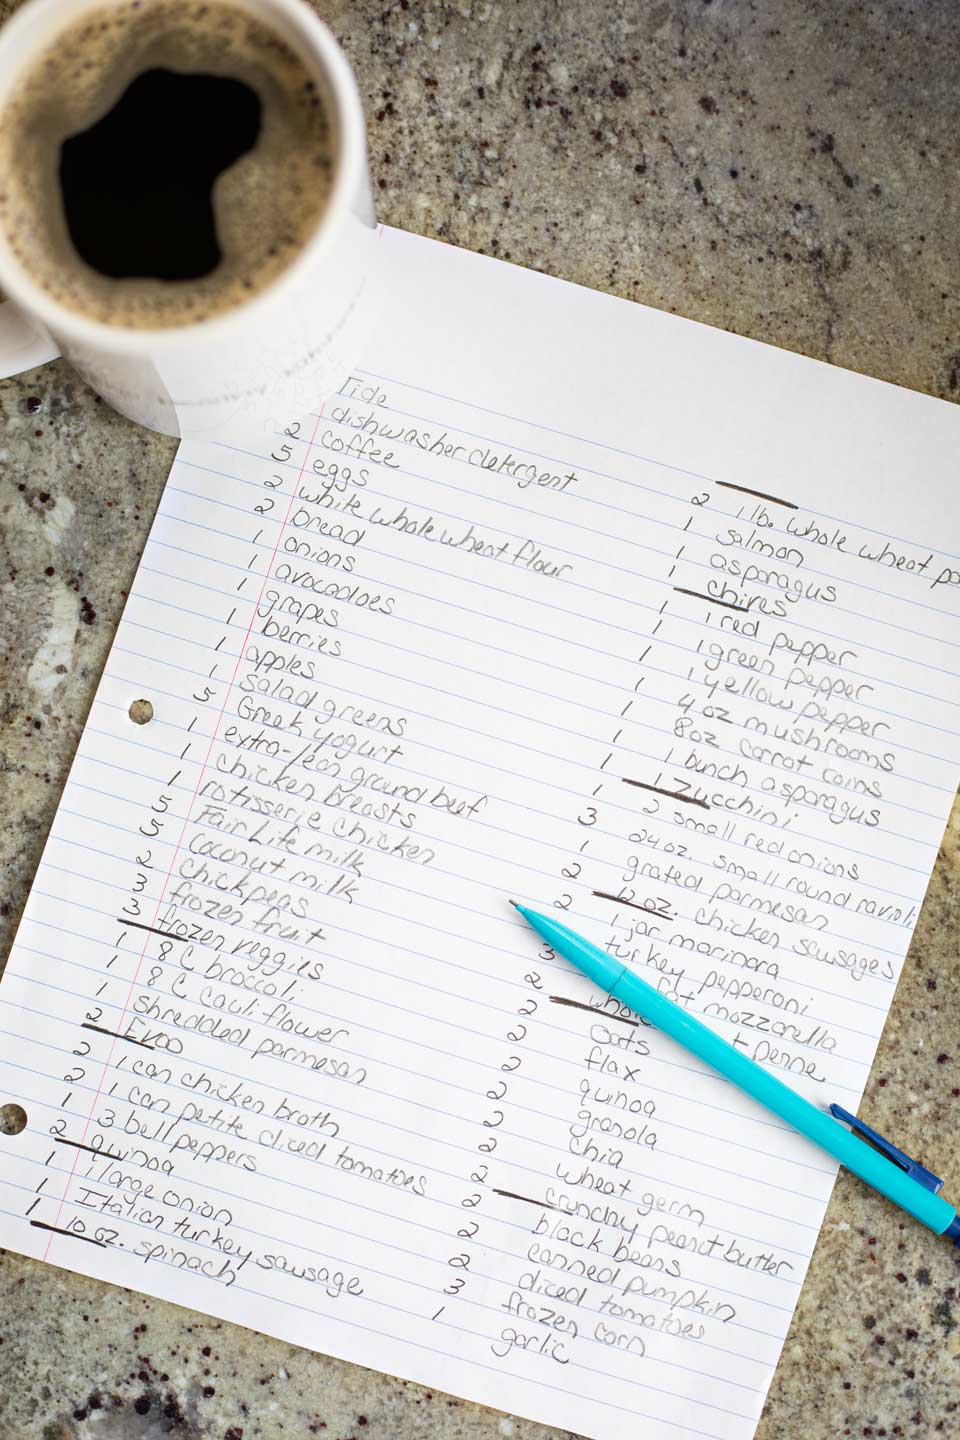 Tide
dishwasher detergent
2 coffee
5 eggs
2 white whole wheat flour
2 bread
1 onions
1 avocadoes
1 grapes
1 berries
1 apples
1 salad greens
5 Greek yogurt
1 extra-lean ground beef
1 chicken breasts
1 rotisserie chicken
5 Fair Life milk
5 coconut milk
2 chickpeas
3 frozen fruit
3 frozen veggies
1 8 C broccoli
1 8 C cauliflower
1 shredded parmesan
2 EVOO
2 1 can chicken broth
2 1 can petite diced tomatoes
1 3 bell peppers
2 quinoa
1 1 large onion
1 Italian turkey sausage
1 10 oz. spinach
2 1 lb. whole wheat
1 salmon
1 asparagus
1 chives
1 1 red pepper
1 1 green pepper
1 1 yellow pepper
1 4 oz mushrooms
1 8oz carrot coins
1 1 bunch asparagus
1 1 zucchini
1 2 small red onions
3 24 oz. small round ravioli
1 grated parmesan
2 12 oz. chicken sausages
2 1 jar marinara
turkey pepperoni
3 fat mozzarella
2 whole penne
2 oats
2 flax
2 quinoa
2 granola
2 chia
2 wheat germ
2 crunchy peanut butter
2 black beans
2 canned pumpkin
2 diced tomatoes
3 frozen corn
1 garlic